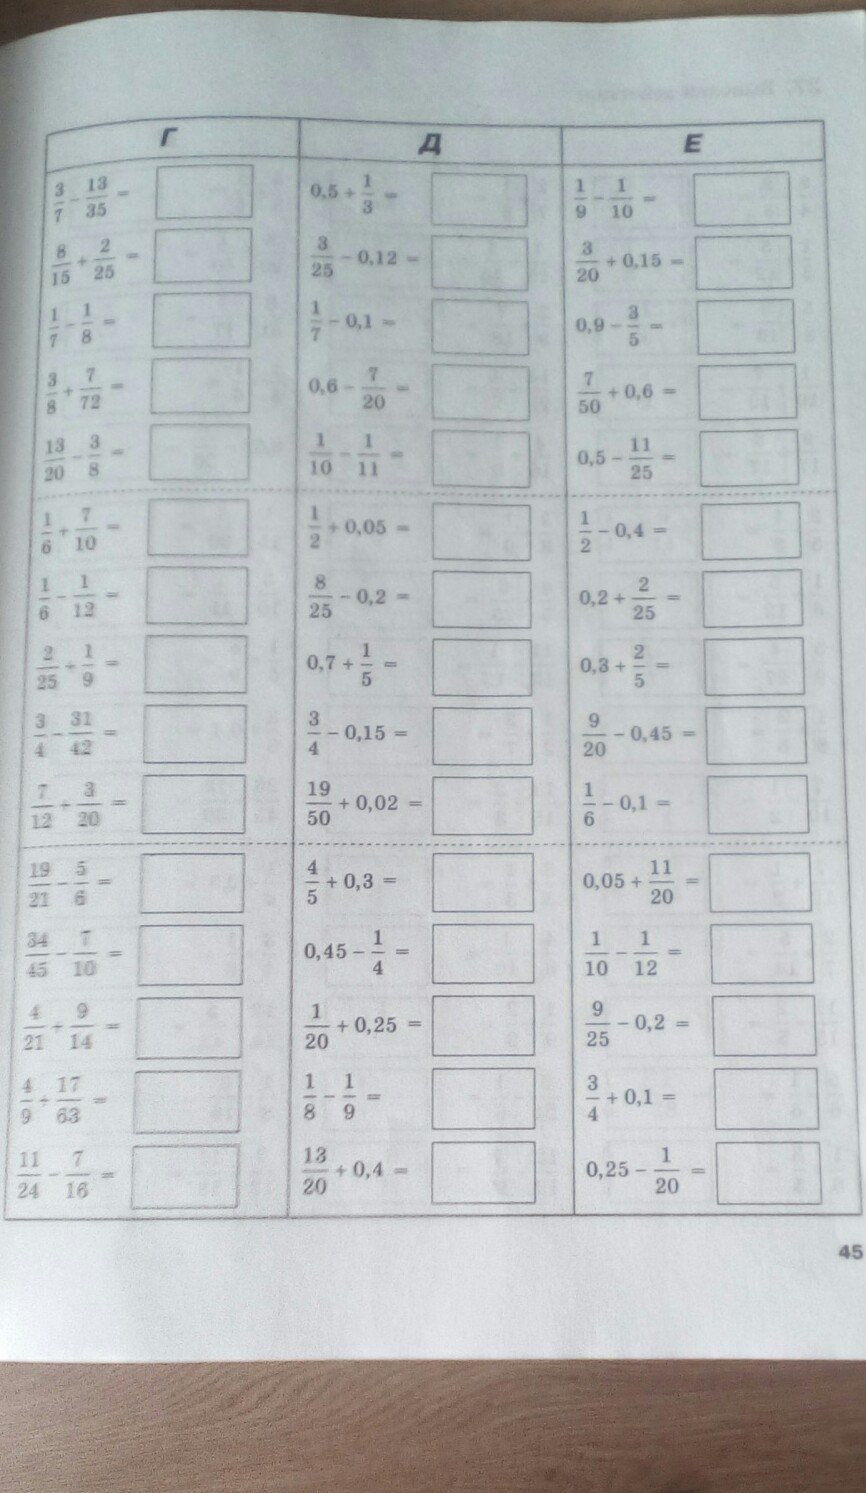 Г Д Е
3/7 - 13/35 = 0,5 + 1/3 = 1/9 - 1/10 =
8/15 + 2/25 = 3/25 - 0,12 = 3/20 + 0,15 =
1/7 - 1/8 = 1/7 - 0,1 = 0,9 - 3/5 =
3/8 + 7/72 = 0,6 - 7/20 = 7/50 + 0,6 =
13/20 - 3/8 = 1/10 - 1/11 = 0,5 - 11/25 =
1/6 + 7/10 = 1/2 + 0,05 = 1/2 - 0,4 =
1/6 - 1/12 = 8/25 - 0,2 = 0,2 + 2/25 =
2/25 + 1/9 = 0,7 + 1/5 = 0,3 + 2/5 =
3/4 - 31/42 = 3/4 - 0,15 = 9/20 - 0,45 =
7/12 + 3/20 = 19/50 + 0,02 = 1/6 - 0,1 =
19/21 - 5/6 = 4/5 + 0,3 = 0,05 + 11/20 =
34/45 - 7/10 = 0,45 - 1/4 = 1/10 - 1/12 =
4/21 + 9/14 = 1/20 + 0,25 = 9/25 - 0,2 =
4/9 + 17/63 = 1/8 - 1/9 = 3/4 + 0,1 =
11/24 - 7/16 = 13/20 + 0,4 = 0,25 - 1/20 =
45